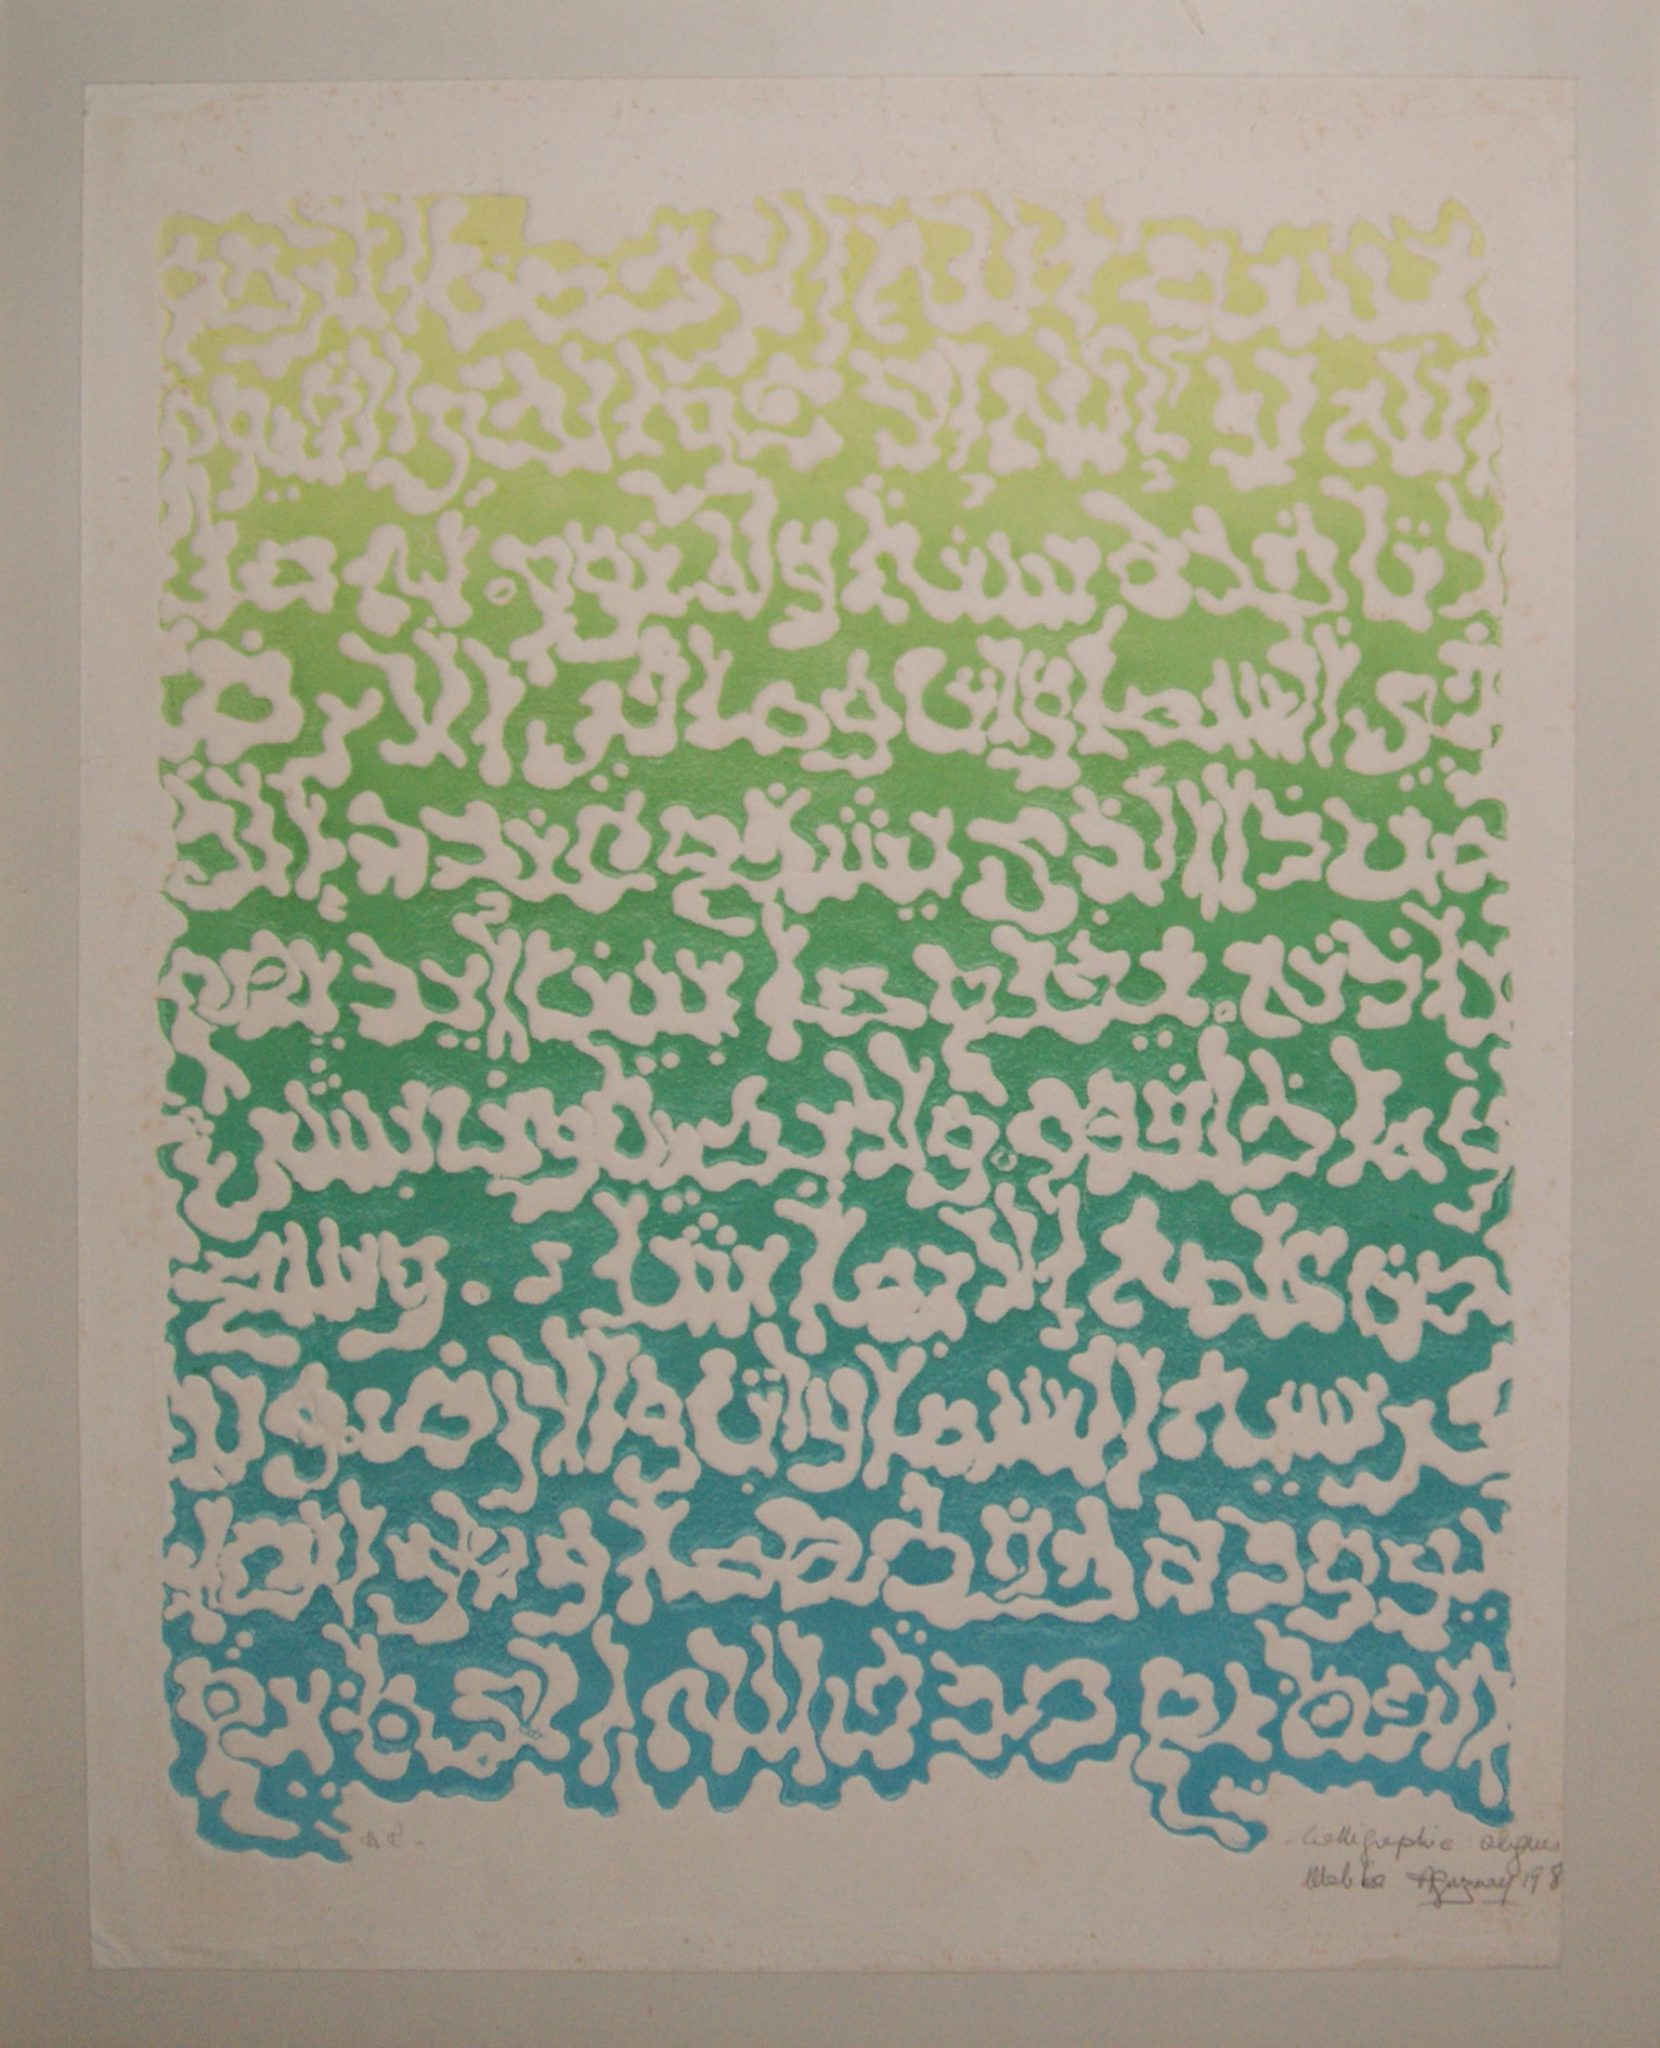 بسم الله الرحمن الرحيم
الله لا اله الا هو الحي القيوم
لا تاخذه سنة ولا نوم له ما
في السماوات وما في الارض
من ذا الذي يشفع عنده الا
باذنه يعلم ما بين ايديهم
وما خلفهم ولا يحيطون بشيء
من علمه الا بما شاء . وسع
كرسيه السماوات والارض ولا
يؤوده حفظهما وهو العلي
العظيم صدق الله العظيم
Calligraphie algues
Malika Agueznay 198